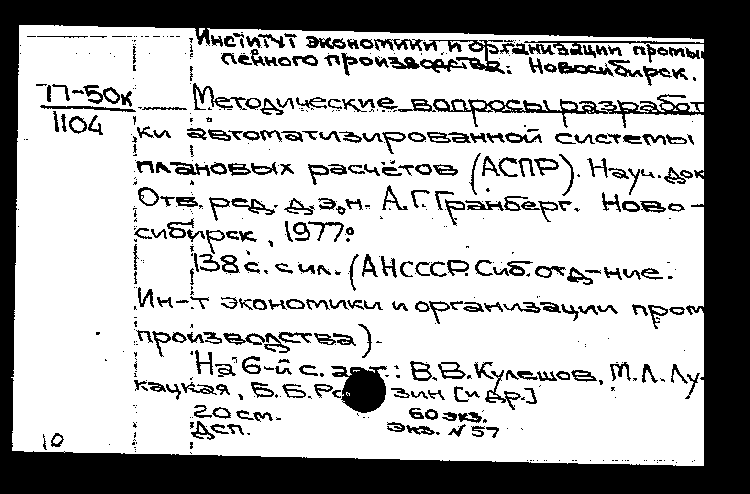 Институт экономики и организации промыш
ленного производства. Новосибирск.
77-50к
1104
Методические вопросы разработ
ки автоматизированной системы
плановых расчётов (АСПР). Науч. док
Отв. ред. д.э.н. А.Г. Гранберг. Ново-
сибирск, 1977.
138 с. с ил. (АН СССР. Сиб. отд-ние.
Ин-т экономики и организации пром
производства).
На 6-й с. авт.: В.В. Кулешов, М.Л. Лу-
кацкая, Б.Б. Ро зин [и др.]
20 см. 60 экз.
Дсп. Экз. N 57
10